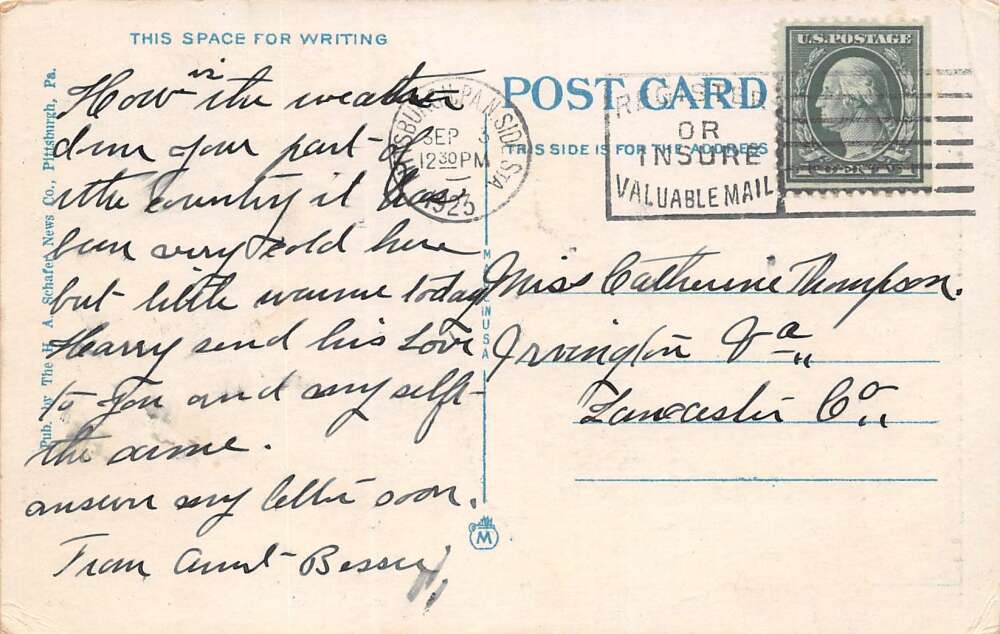 THIS SPACE FOR WRITING
How is the weather
down your part of
the country it has
been very cold here
but little warme today
Harry send his Love
to you and my self
the same.
answer my letter soon.
From Aunt Bessie
Pub. by The H. A. Schafer News Co., Pittsburgh, Pa.
MADE IN U S A
M
POST CARD
THIS SIDE IS FOR THE ADDRESS
PITTSBURGH, PA. N. SIDE STA
SEP 3
12 30 PM
1925
REGISTER
OR
INSURE
VALUABLE MAIL
U.S. POSTAGE
1 CENT 1
Miss Catherine Thompson.
Irvington Va
Lancaster Co.